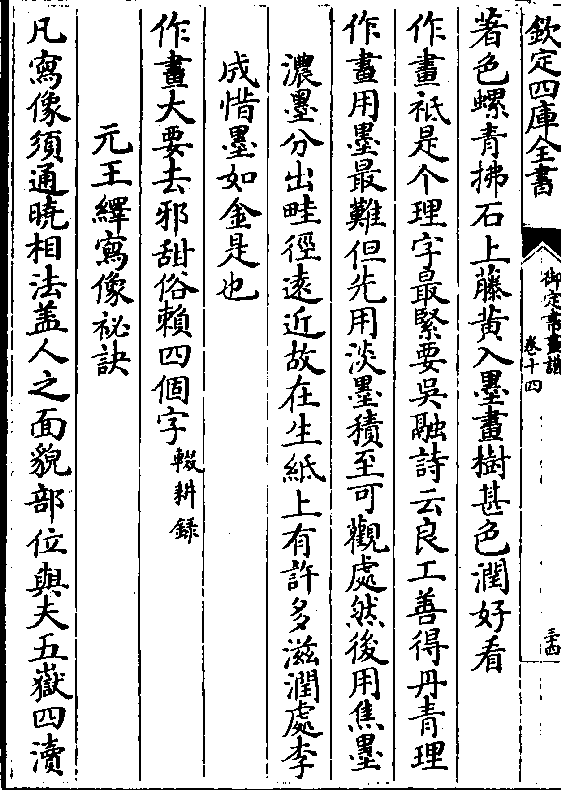 欽定四庫全書
御定書畫譜
卷十四
三十四
著色螺青拂石上藤黄入墨畫樹甚色潤好看
作畫衹是个理字最緊要吳融詩云良工善得丹青理
作畫用墨最難但先用淡墨積至可觀處然後用焦墨
濃墨分出畦徑逺近故在生紙上有許多滋潤處李
成惜墨如金是也
作畫大要去邪甜俗賴四個字輟耕録
元王繹寫像祕訣
凡寫像須通曉相法葢人之面貌部位與夫五嶽四瀆